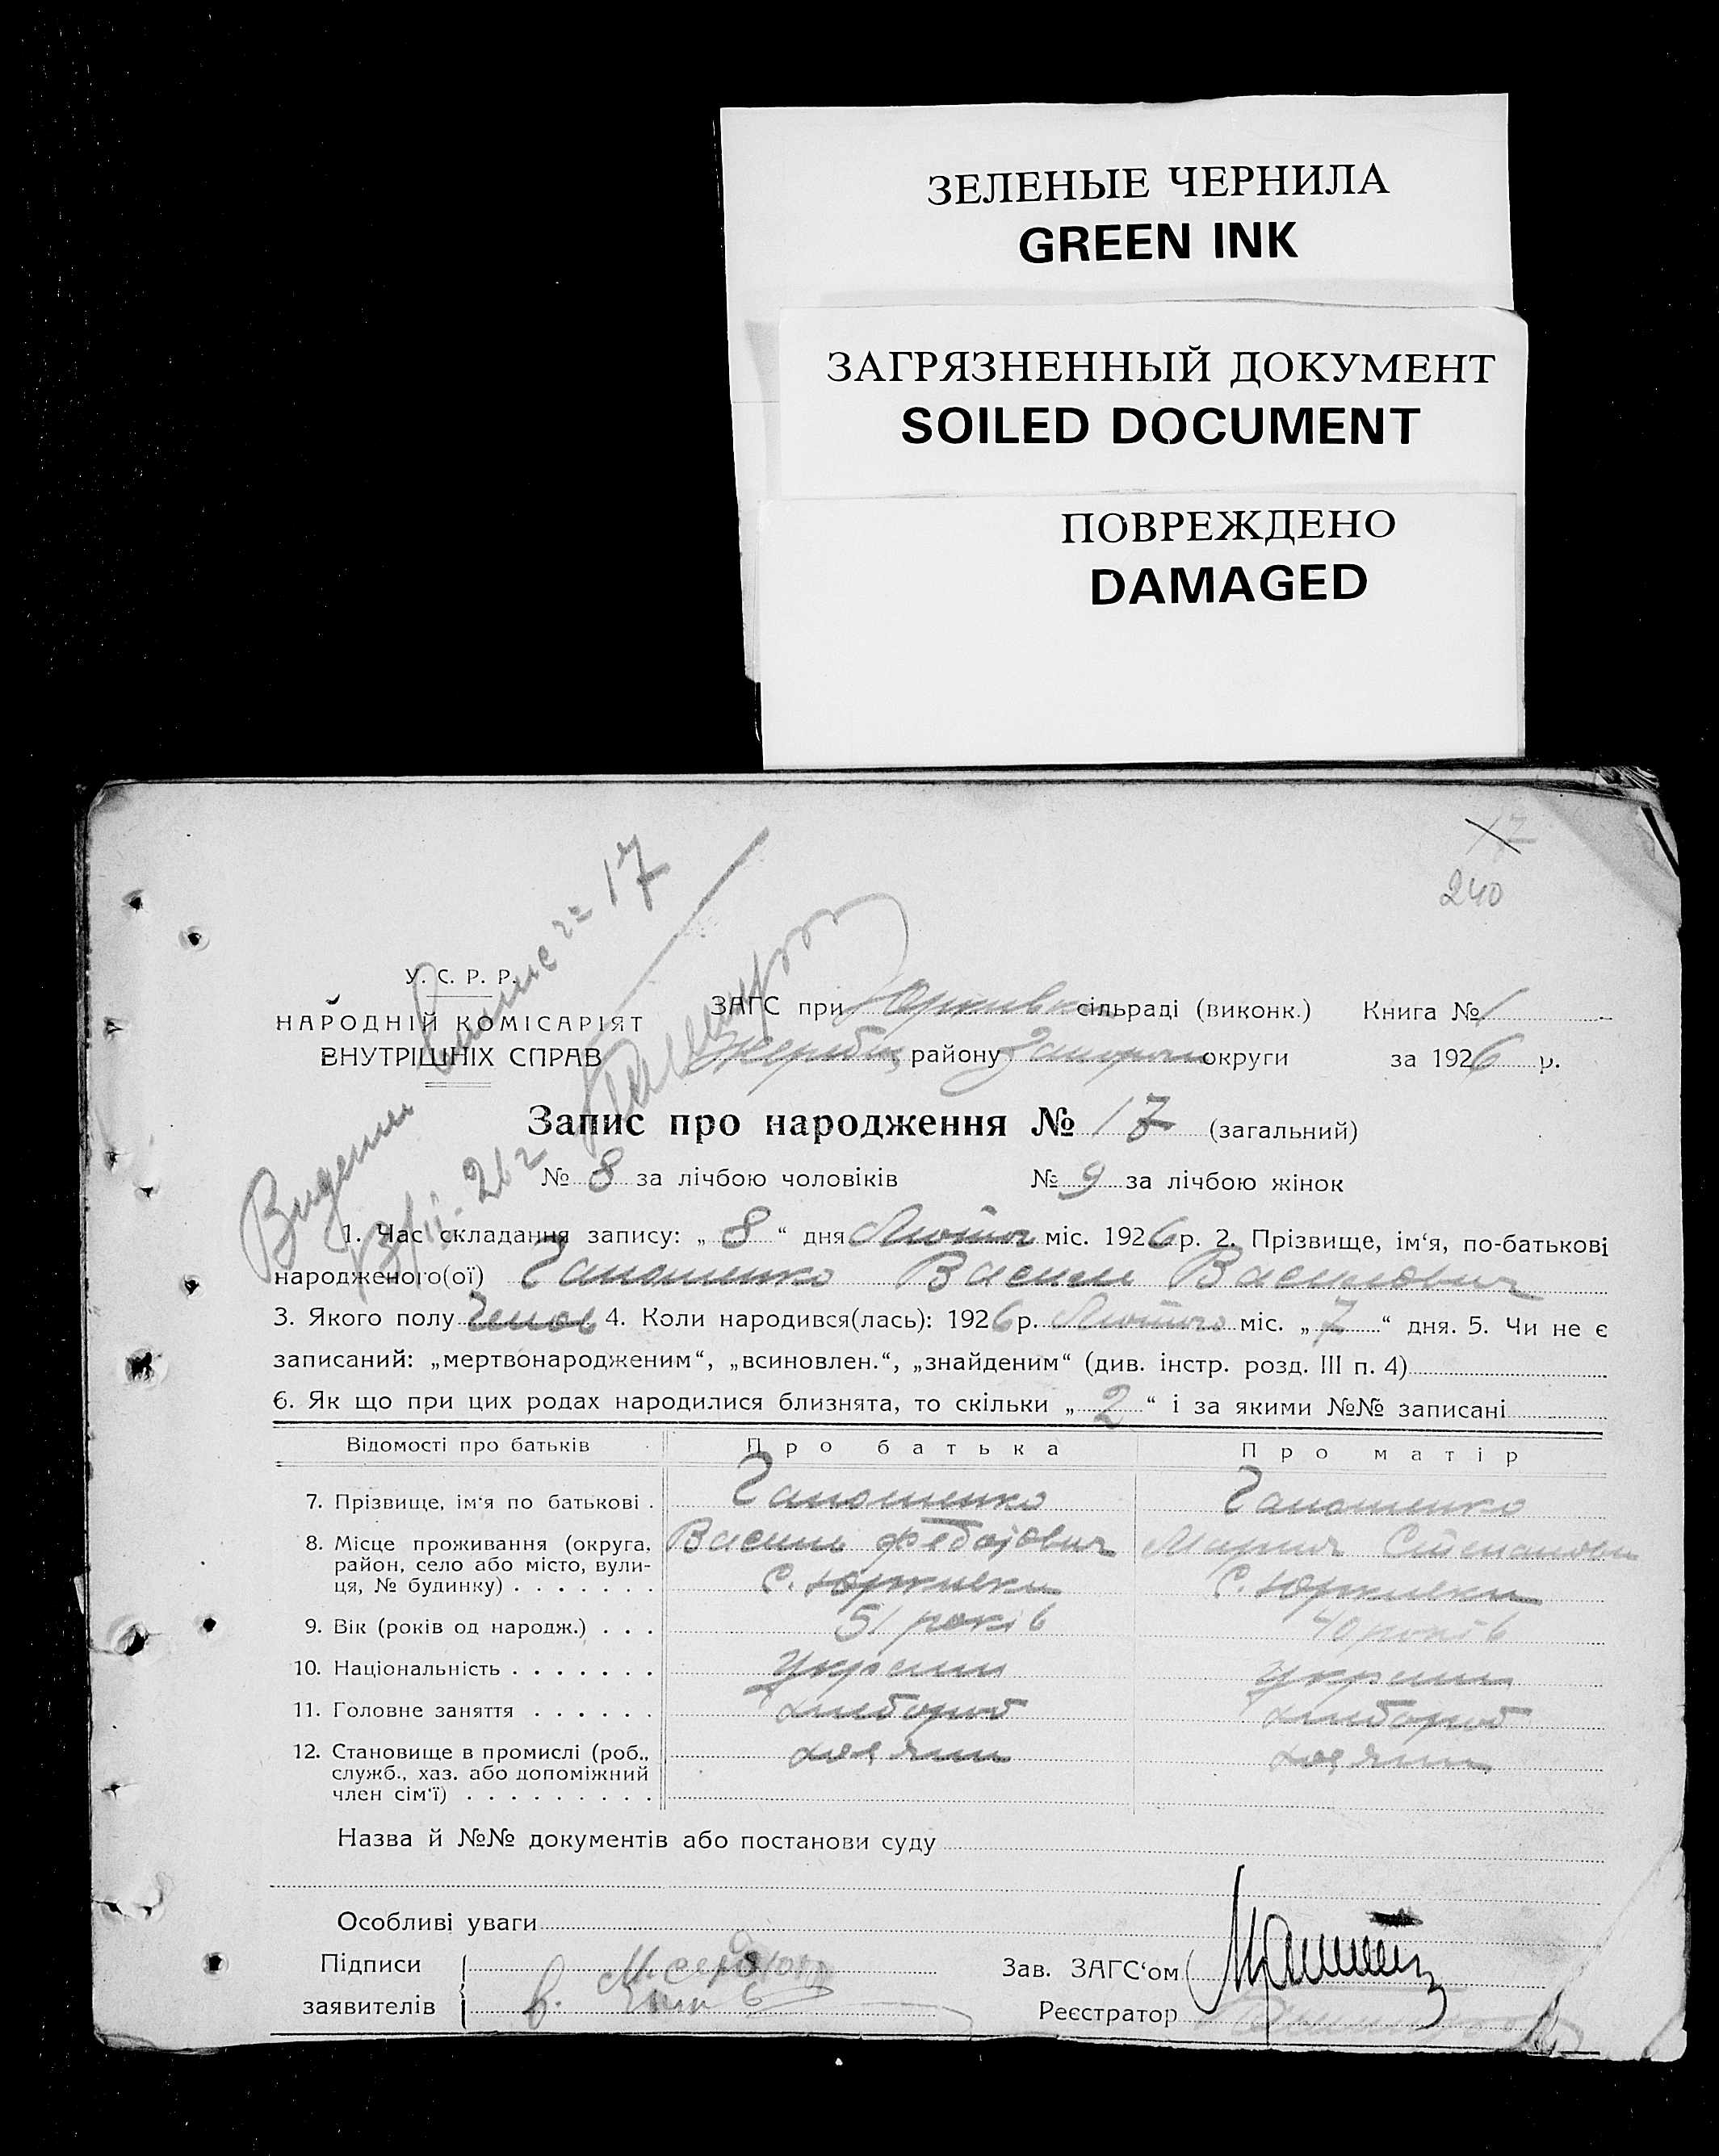 ЗЕЛЕНЫЕ ЧЕРНИЛА
GREEN INK
ЗАГРЯЗНЕННЫЙ ДОКУМЕНТ
SOILED DOCUMENT
ПОВРЕЖДЕНО
DAMAGED
17
240
У. С. Р. Р.
НАРОДНІЙ КОМІСАРІЯТ
ВНУТРІШНІХ СПРАВ
ЗАГС при сільраді (виконк.) Книга № 1
району округи за 1926 р.
Запис про народження № 17 (загальний)
№ 8 за лічбою чоловіків № 9 за лічбою жінок
1. Час складання запису: „ 8 “ дня Лютого міс. 1926 р. 2. Прізвище, ім‘я, по-батькові
народженого(ої) Гапошенко Василь Васильович
3. Якого полу 4. Коли народився(лась): 1926 р. Лютого міс. „ 7 “ дня. 5. Чи не є
записаний: „мертвонародженим“, „всиновлен.“, „знайденим“ (див. інстр. розд. III п. 4)
6. Як що при цих родах народилися близнята, то скільки „ 2 “ і за якими №№ записані
Відомості про батьків Про батька Про матір
7. Прізвище, ім‘я по батькові . Гапошенко Гапошенко
Василь Федотович Мария Степановна
8. Місце проживання (округа, район, село або місто, вулиця, № будинку) . . . . . . . с. Юрковка с. Юрковка
9. Вік (років од народж.) . . . 51 років 40 років
10. Національність . . . . . . . україн україн
11. Головне заняття . . . . . . хлебороб хлебороб
12. Становище в промислі (роб., служб., хаз. або допоміжний член сім‘ї) . . . . . . . . .
Назва й №№ документів або постанови суду
Особливі уваги
Підписи
заявителів
Зав. ЗАГС‘ом
Реєстратор